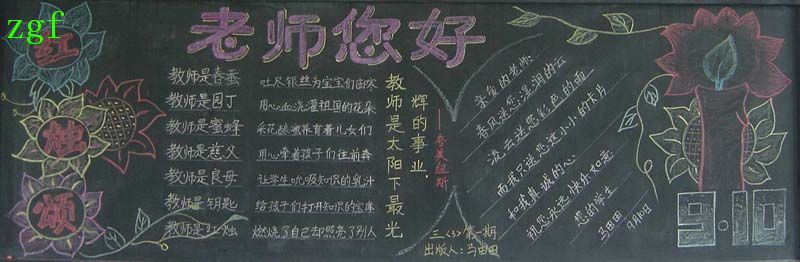 zgf
红
烛
颂
老师您好
教师是春蚕 吐尽银丝为宝宝们御寒
教师是园丁 用心血浇灌祖国的花朵
教师是蜜蜂 采花酿蜜养育着儿女们
教师是慈父 用心牵着孩子们往前奔
教师是良母 让学生吮吸知识的乳汁
教师是钥匙 给孩子们打开知识的宝库
教师是红烛 燃烧了自己却照亮了别人
教师是太阳下最光
辉的事业.
——夸美纽斯
三<3>第一期
出版人:马田田
亲爱的老师
春风送您湿润的云
流云送您彩色的雨
而我只送您这小小的卡片
和我真诚的心
祝您永远快乐如意
您的学生
马田田
9月10日
9.10